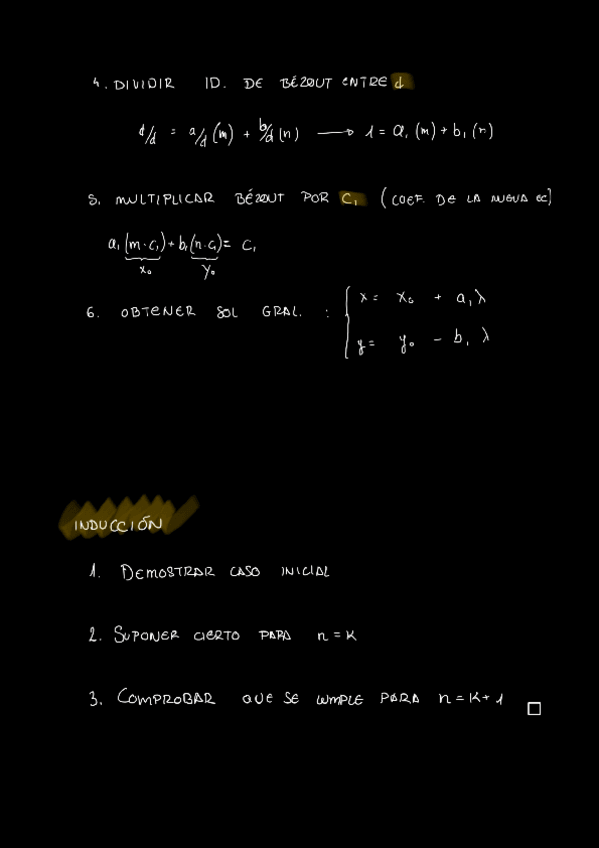 4. DIVIDIR ID. DE BÉZOUT ENTRE d
d/d = a/d (m) + b/d (n) → 1 = a₁ (m) + b₁ (n)
5. MULTIPLICAR BÉZOUT POR C₁ (COEF. DE LA NUEVA EC)
a₁(m·c₁) + b₁(n·c₁) = C₁
x₀ y₀
6. OBTENER SOL GRAL. : { x = x₀ + a₁ λ
y = y₀ - b₁ λ
INDUCCIÓN
1. DEMOSTRAR CASO INICIAL
2. SUPONER CIERTO PARA n = K
3. COMPROBAR QUE SE CUMPLE PARA n = K + 1 □